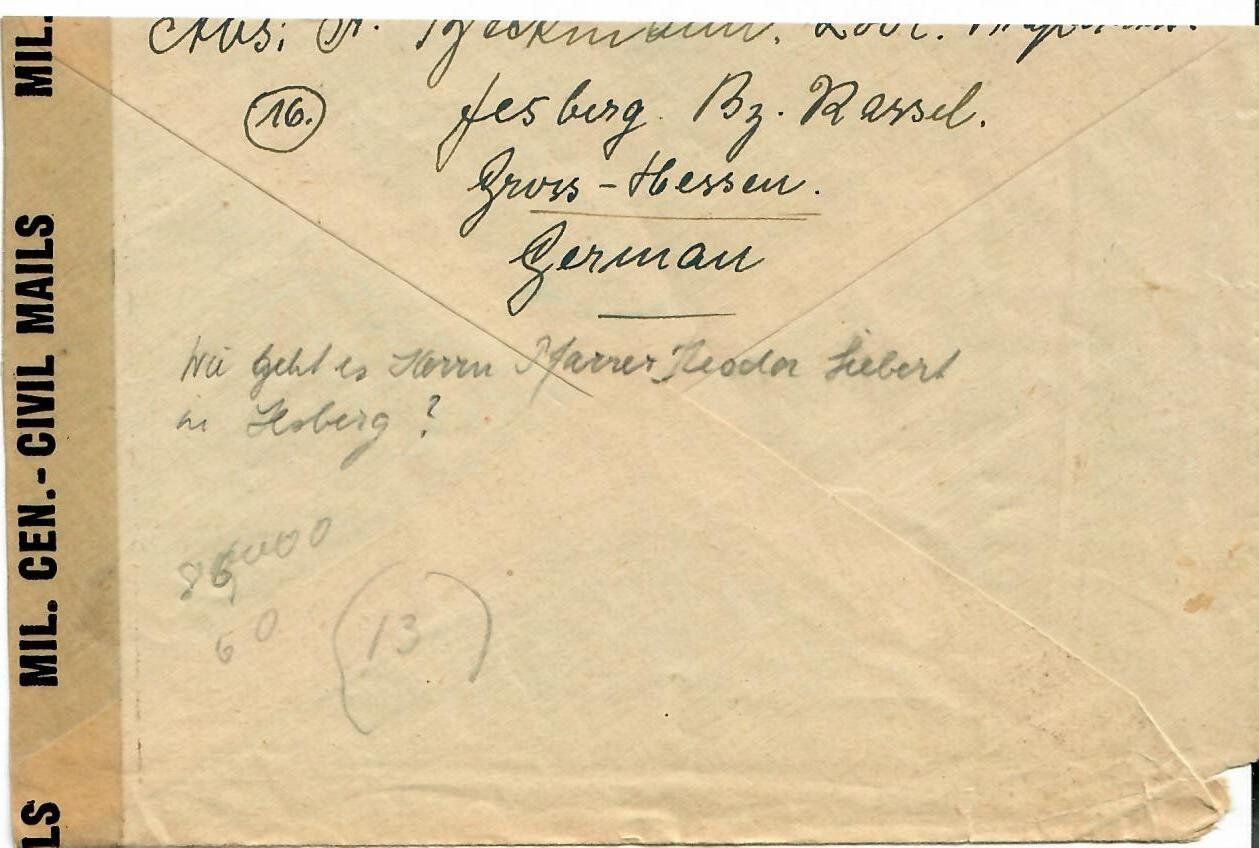 Abs; Fr. Beckmann.
(16.) Jesberg. Bz. Kassel.
Gross-Hessen.
German
Wie geht es Herrn Pfarrer Theodor Siebert
in Jesberg?
60
(13)
MIL. CEN.-CIVIL MAILS
MIL.
LS